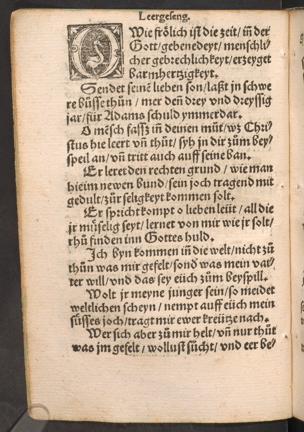 Leergeseng.
O Wie frölich ist die zeit/ iñ der
Gott/ gebenedeyt/ menschli
cher gebrechlichkeyt/ erzeyget
barmhertzigkeyt.
Sendet seinē lieben son/ laßt jn schwe
re büsse thůn/ mer deñ drey vnd dreyssig
jar/ für Adams schuld ymmerdar.
O mēsch fassz iñ deinen můt/ wz Chri
stus hie leert vñ thůt/ syh jn dir zům bey
speil an/ vñ tritt auch auff seine ban.
Er leret den rechten grund/ wie man
hie im newen bund/ sein joch tragend mit
gedult/ zůr seligkeyt kommen solt.
Er spricht kompt o lieben leüt/ all die
jr můselig seyt/ lernet von mir wie jr solt/
rhů finden inn Gottes huld.
Ich byn kommen iñ die welt/ nicht zů
thůn was mir gefelt/ sond was mein vat/
ter will/ vnd das sey eüch zům beyspill.
Wolt jr meyne junger sein/ so meidet
weltlichen scheyn/ nempt auff eüch mein
süsses joch/ tragt mir ewer kreütze nach.
Wer sich aber zů mir helt/ vñ nur thůt
was jm gefelt/ wollust sůcht/ vnd eer be/